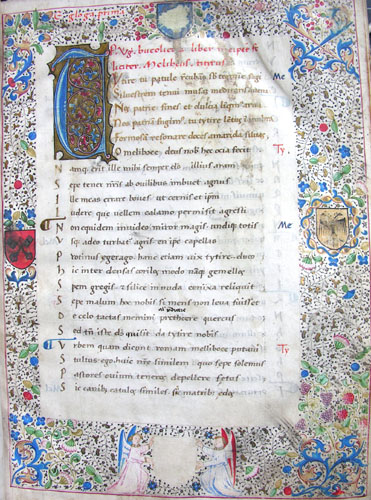 Egloga prima
P. Vg. bucolicorum liber incipit fe
liciter. Melibeus. Tytirus
Tityre tu patule recubans sub tegmine fagi Me
Siluestrem tenui musam meditaris auena
Nos patrie fines et dulcia linqmus arua
Nos patriam fugimus tu tytire lentus i umbra
Formosa resonare doces amarida siluas
O meliboee deus nobis hec ocia fecit Ty.
Namq erit ille mihi semper deus illius aram
Sepe tener nris ab ouilibus imbuet agnus
Ille meas errare boues ut cernis et ipm
Ludere que uellem calamo permisit agresti
Non equidem inuideo miror magis undiq totis Me
Usq adeo turbatur agris en ipe capellas
Protinus eger ago hanc etiam uix tytire duco
Hic inter densas corilos modo naq gemellos
Spem gregis a silice in nuda conixa reliquit
Sepe malum hoc nobis si mens non leua fuisset
De celo tactas memini predicere quercus
Sed tn iste deus qui sit da tytire nobis
Urbem quam dicunt romam meliboee putaui Ty
Stultus ego huic nre similem quo sepe solemus
Pastores ouium teneros depellere fetus
Sic canibus catulos similes sic matribus edos